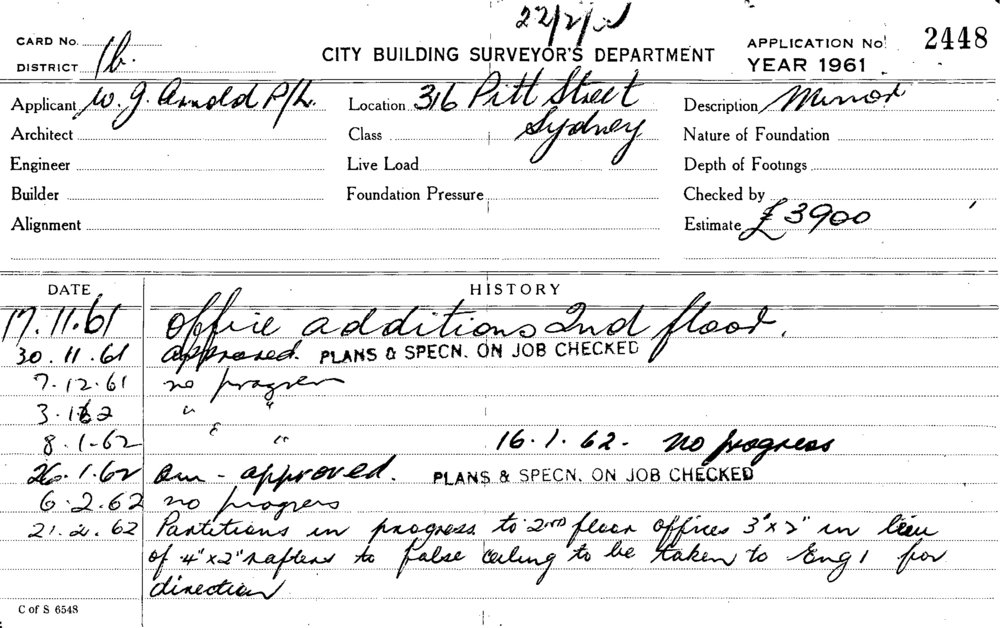 22/2/
CARD No. CITY BUILDING SURVEYOR'S DEPARTMENT APPLICATION No. 2448
DISTRICT 1b. YEAR 1961
Applicant W. G. Arnold P/L. Location 316 Pitt Street Description Minor
Architect Class Sydney Nature of Foundation
Engineer Live Load Depth of Footings
Builder Foundation Pressure Checked by
Alignment Estimate £3900
DATE HISTORY
17.11.61 Office additions 2nd floor.
30.11.61 approved. PLANS & SPECN. ON JOB CHECKED
7.12.61 no progress
3.1.62 " "
8.1.62 " " 16.1.62. no progress
26.1.62 am - approved. PLANS & SPECN. ON JOB CHECKED
6.2.62 no progress
21.2.62 Partitions in progress to 2nd floor offices 3"x2" in lieu
of 4"x2" rafters to false ceiling to be taken to Eng1 for
direction
C of S 6548